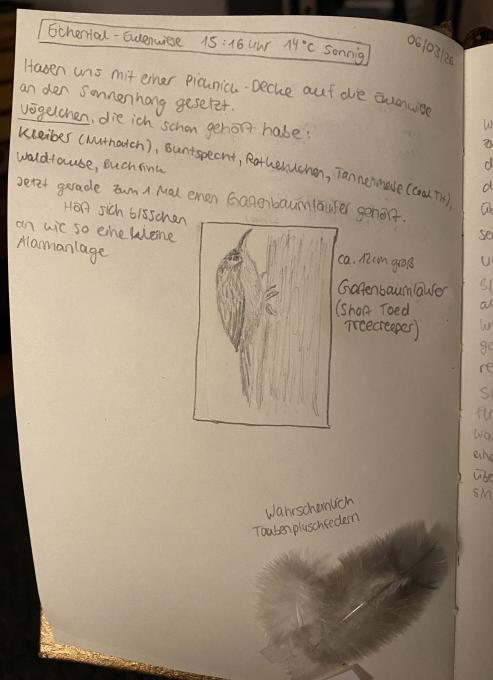 Eichental - Eulenwiese 15:16 Uhr 14°C Sonnig
06/03/26
Haben uns mit einer Picknick-Decke auf die Eulenwiese
an den Sonnenhang gesetzt.
Vögelchen, die ich schon gehört habe:
Kleiber (Nuthatch), Buntspecht, Rotkehlchen, Tannenmeise (Coal Tit),
Waldtaube, Buchfink
Jetzt gerade zum 1 Mal einen Gartenbaumläufer gehört.
Hört sich bisschen
an wie so eine kleine
Alarmanlage
ca. 12cm groß
Gartenbaumläufer
(Short Toed
Treecreeper)
Wahrscheinlich
Taubenpluschfedern